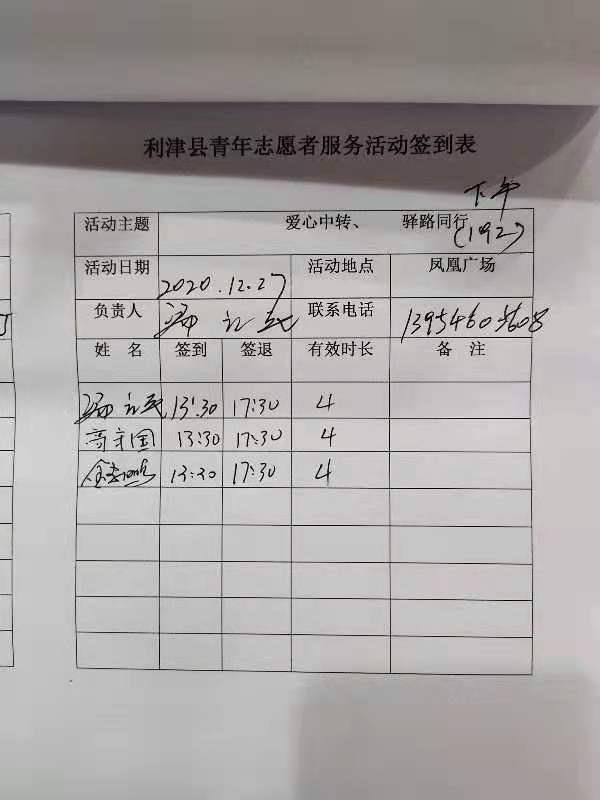 利津县青年志愿者服务活动签到表
下午
活动主题 爱心中转、 驿路同行 (192)
活动日期 2020.12.27 活动地点 凤凰广场
负责人 联系电话
姓名 签到 签退 有效时长 备注
13:30 17:30 4
高守国 13:30 17:30 4
13:30 17:30 4